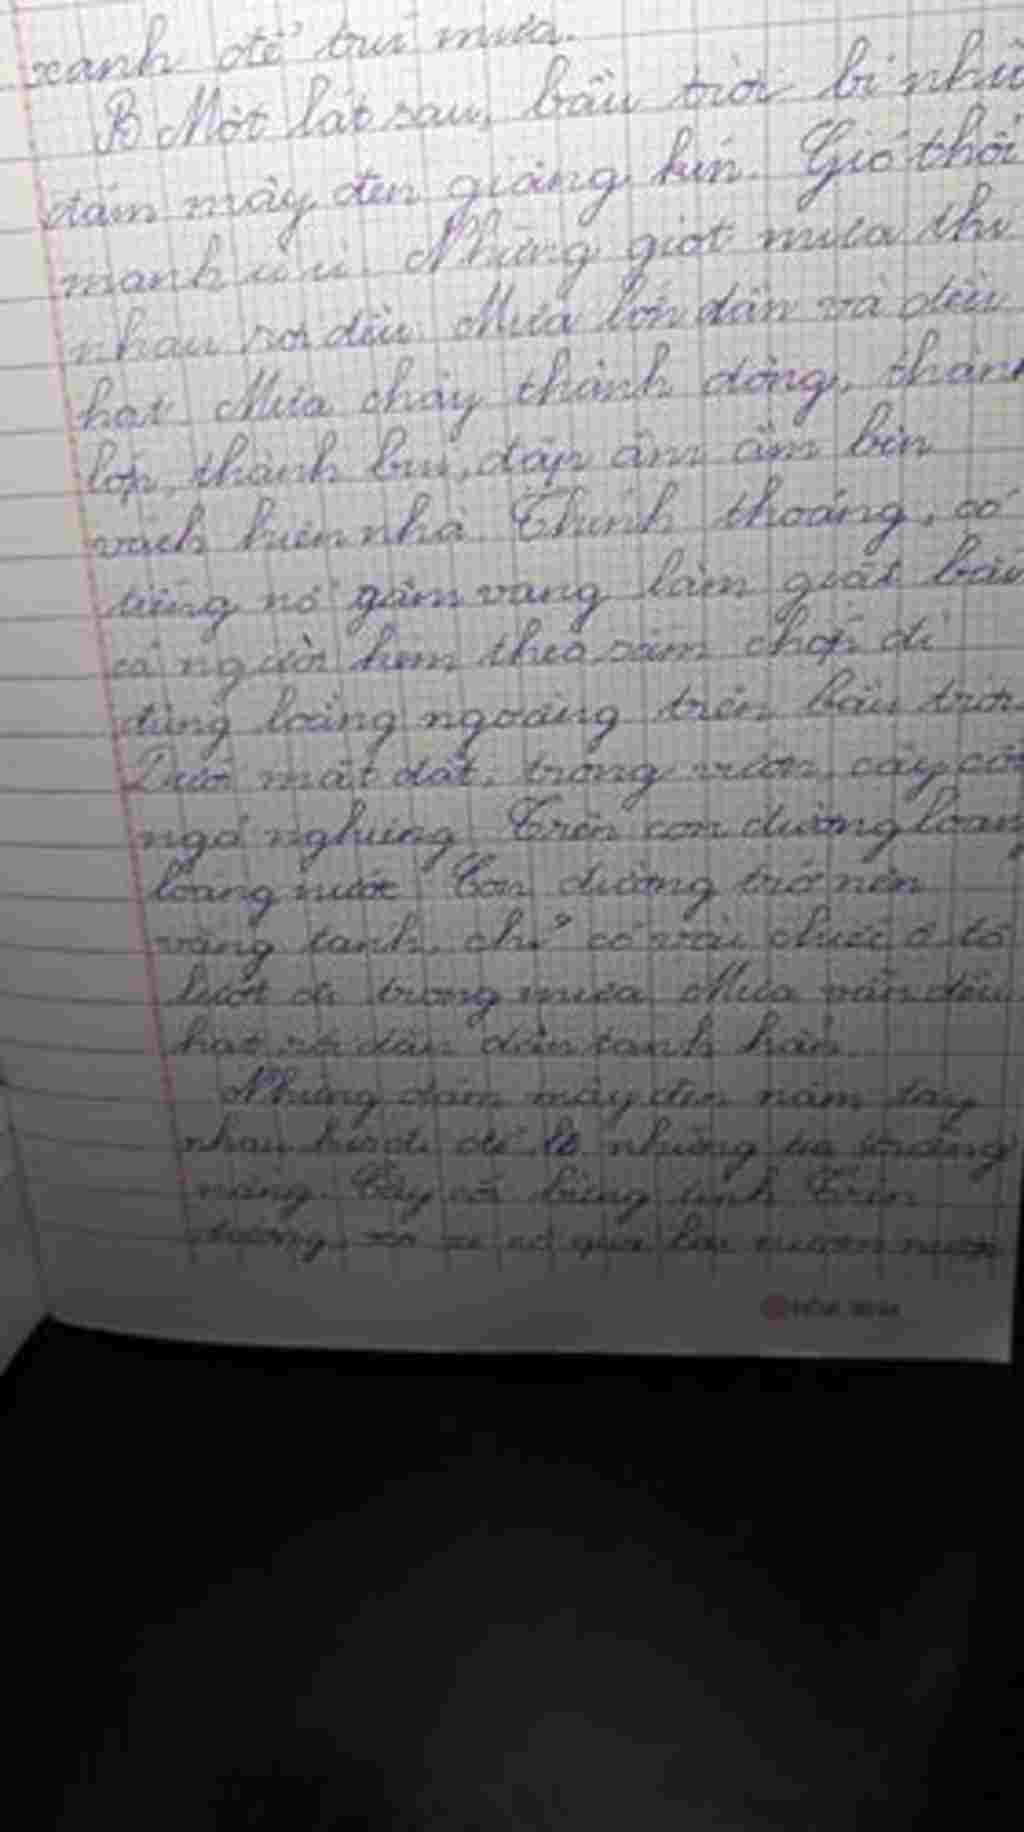 xanh để trú mưa.
B Một lát sau, bầu trời bị nhữ
đám mây đen giăng kín. Gió thổi
mạnh ù ù. Những giọt mưa thi
nhau rơi đều. Mưa lớn dần và đều
hạt. Mưa chảy thành dòng, thành
lớp, thành bụi, đập ầm ầm bên
vách hiên nhà. Thỉnh thoảng, có
tiếng nổ gầm vang làm giật bắn
cả người kèm theo sấm chớp đi
đùng loằng ngoằng trên bầu trời.
Dưới mặt đất, trong vườn, cây cối
ngả nghiêng. Trên con đường loang
loáng nước. Con đường trở nên
vắng tanh, chỉ có vài chiếc ô tô
lướt đi trong mưa. Mưa vẫn đều
hạt rồi dần dần tạnh hẳn.
Những đám mây đen nắm tay
nhau kéo đi để lộ những tia
nắng. Cây cối bừng tỉnh. Trên
đường, xe cộ qua lại
HỒNG